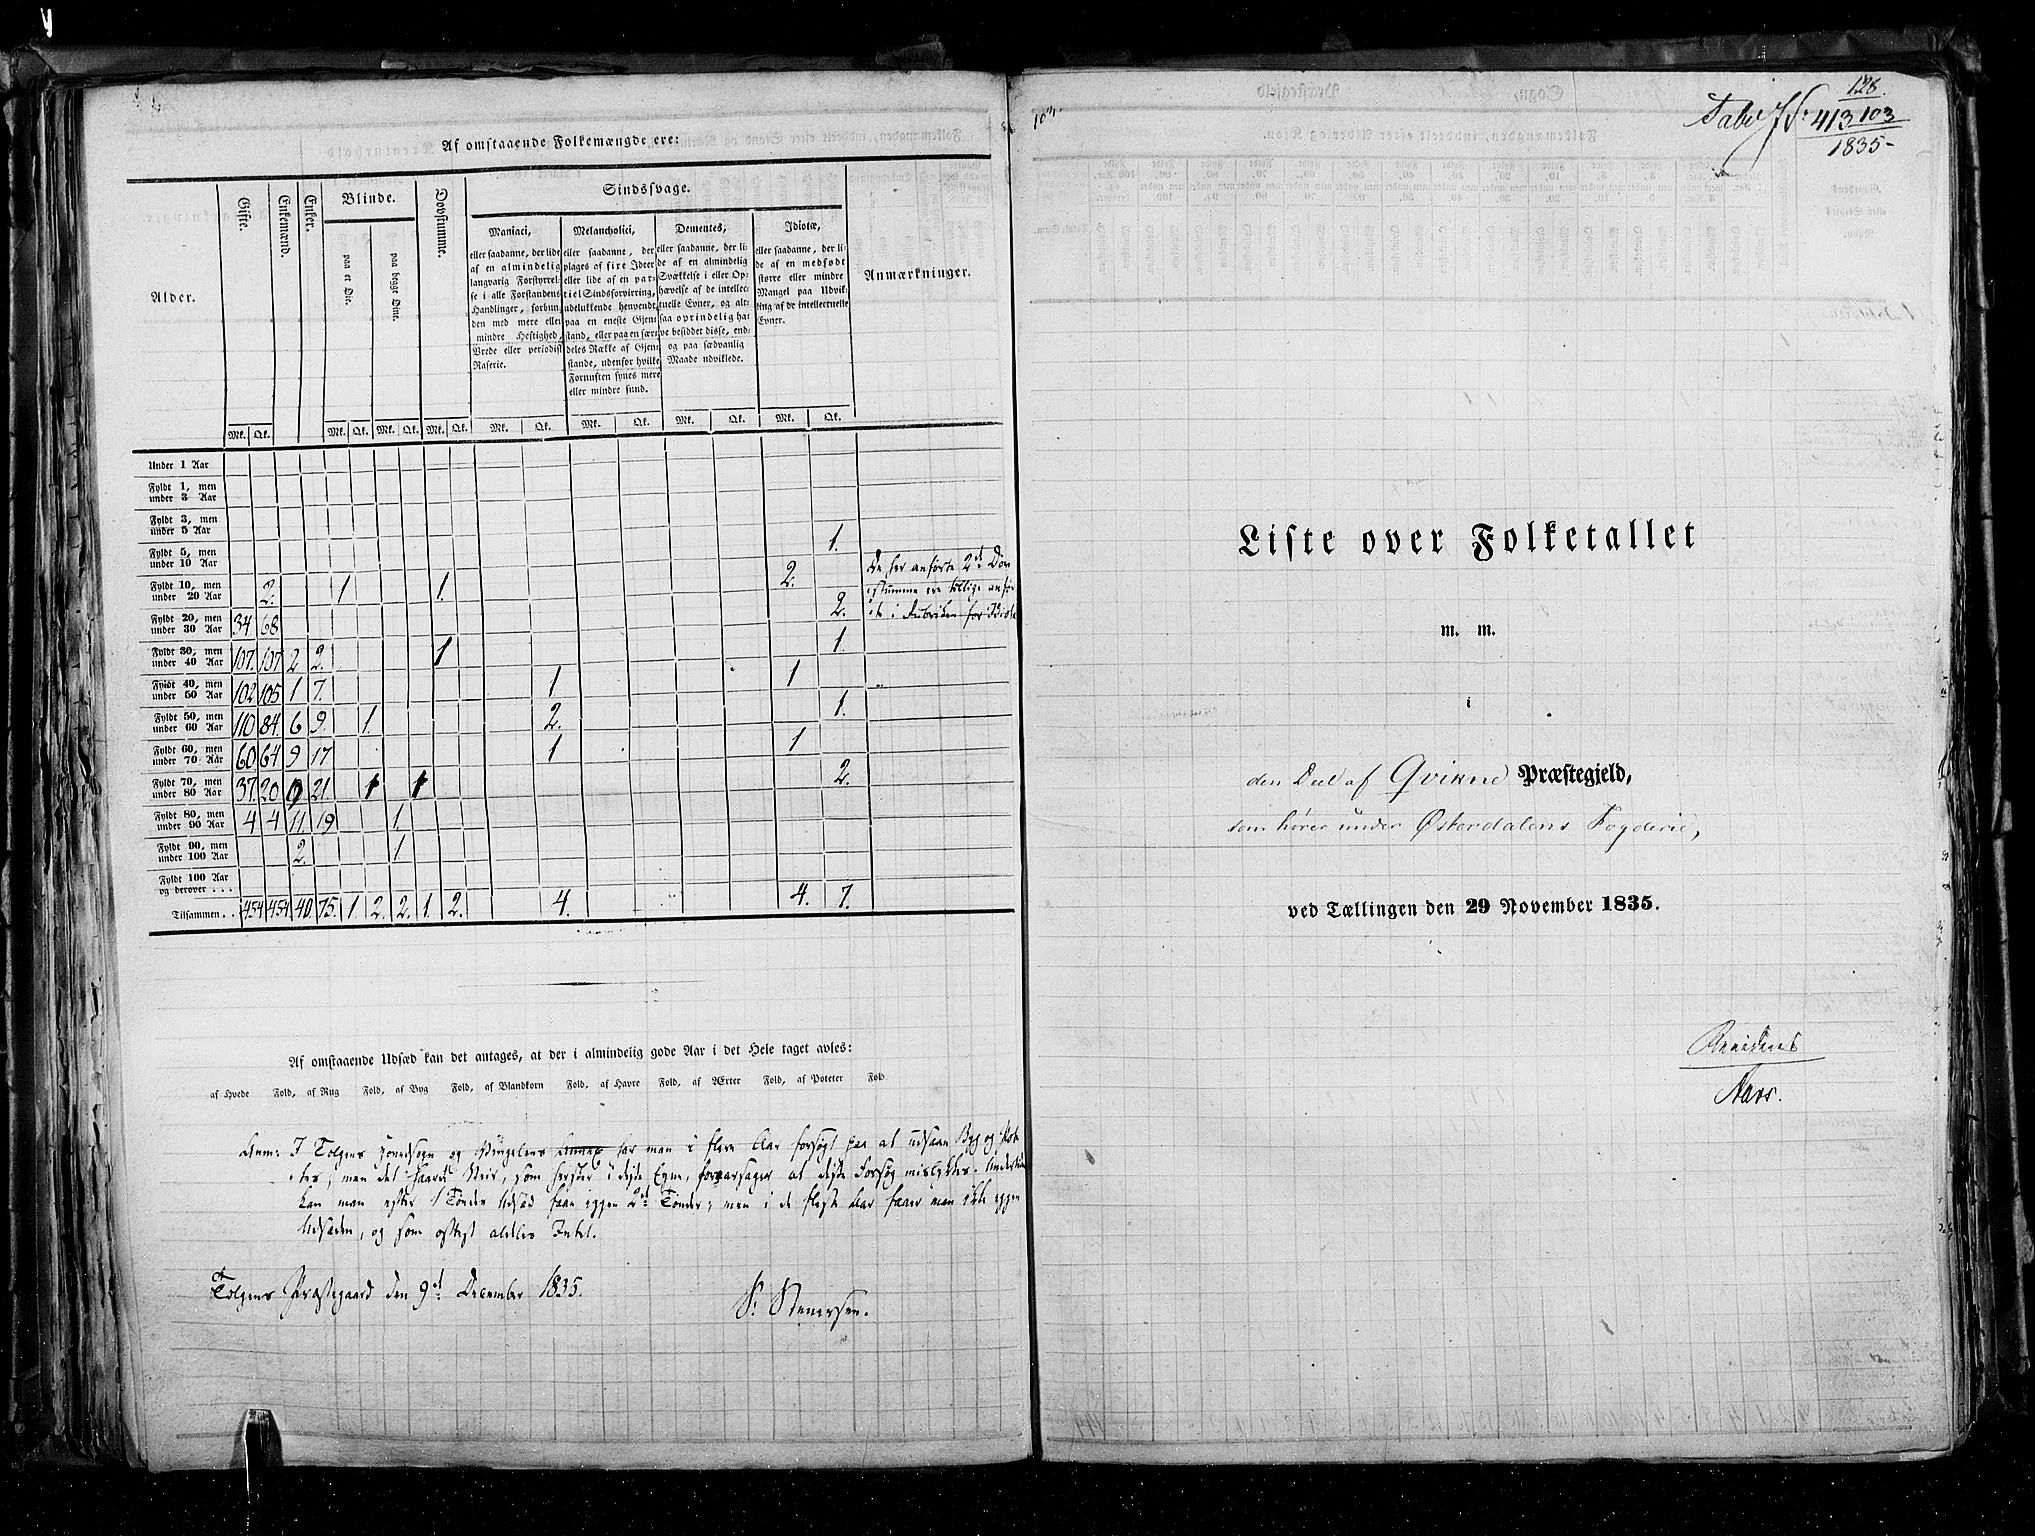 Af omstaaende Folkemængde ere:
Alder.
Gifte.
Enkemænd.
Enker.
Blinde.
paa et Øie.
paa begge Øine.
Døvstumme.
Sindssvage.
Maniaci,
eller saadanne, der lide
af en almindelig
langvarig Forstyrrel-
se i alle Forstandens
Handlinger, forbun-
den med mere eller
mindre Heftighed,
Vrede eller periodisk
Raserie.
Melancholici,
eller saadanne, der
plages af fixe Ideer
eller lide af en par-
tiel Sindsforvirring,
udelukkende henvendt
paa en eneste Gjen-
stand, eller paa en sær-
deles Række af Gjen-
stande, udenfor hvilke
Fornuften synes mere
eller mindre sund.
Dementes,
eller saadanne, der li-
de af en almindelig
Svækkelse i eller Op-
hævelse af de intellec-
tuelle Evner, og alt-
saa oprindelig ha-
ve besiddet disse, end-
og paa sædvanlig
Maade udviklede.
Idiotæ,
eller saadanne, der li-
de af en medfødt
større eller mindre
Mangel paa Udvik-
ling af de intellectuelle
Evner.
Anmærkninger.
Mk. Qk. Mk. Qk. Mk. Qk. Mk. Qk. Mk. Qk. Mk. Qk. Mk. Qk. Mk. Qk.
Under 1 Aar
Fyldt 1, men
under 3 Aar
Fyldt 3, men
under 5 Aar
Fyldt 5, men
under 10 Aar 1.
Fyldt 10, men
under 20 Aar 2. 1 1. 2.
Fyldt 20, men
under 30 Aar 34 68 2.
Fyldt 30, men
under 40 Aar 107. 107 2 2. 1 1.
Fyldt 40, men
under 50 Aar 102 105 1 7. 1 1
Fyldt 50, men
under 60 Aar 110 84 6 9. 1. 2. 1.
Fyldt 60, men
under 70 Aar 60 64 9 17 1 1
Fyldt 70, men
under 80 Aar 37. 20 9 21. 1 1 2.
Fyldt 80, men
under 90 Aar 4 4 11. 19 1.
Fyldt 90, men
under 100 Aar 2. 1
Fyldt 100 Aar
og derover . . .
Tilsammen . . 454 454 40. 75. 1. 2. 2. 1. 2. 4. 4. 7.
De her anførte 2de Døv
stumme ere tillige anfør
te i Rubriken for
Af omstaaende Udsæd kan det antages, at der i almindelig gode Aar i det Hele taget avles:
af Hvede Fold, af Rug Fold, af Byg Fold, af Blandkorn Fold, af Havre Fold, af Ærter Fold, af Poteter Fold.
Anm: I Tolgens Hovedsogn og Vingelens Annex har man i flere Aar forsøgt paa at udsaae Byg og Pot
tes, men det haarde Veir, som hersker i disse Egne, foraarsager at disse Forsøg mislykkes. Undertiden
kan man efter 1 Tønde Udsæd faae igjen 2de Tønder; men i de fleste Aar faaer man ikke igjen
Udsæden, og som oftest aldeles Intet.
Tolgens Præstegaard den 9de December 1835.
S: Stenersen.
103.
128.
Tabel No 413 103
1835-
Liste over Folketallet
m. m.
i
den Deel af Qvikne Præstegjeld,
som hører under Østerdalens Fogderie,
ved Tællingen den 29 November 1835.
Aars.